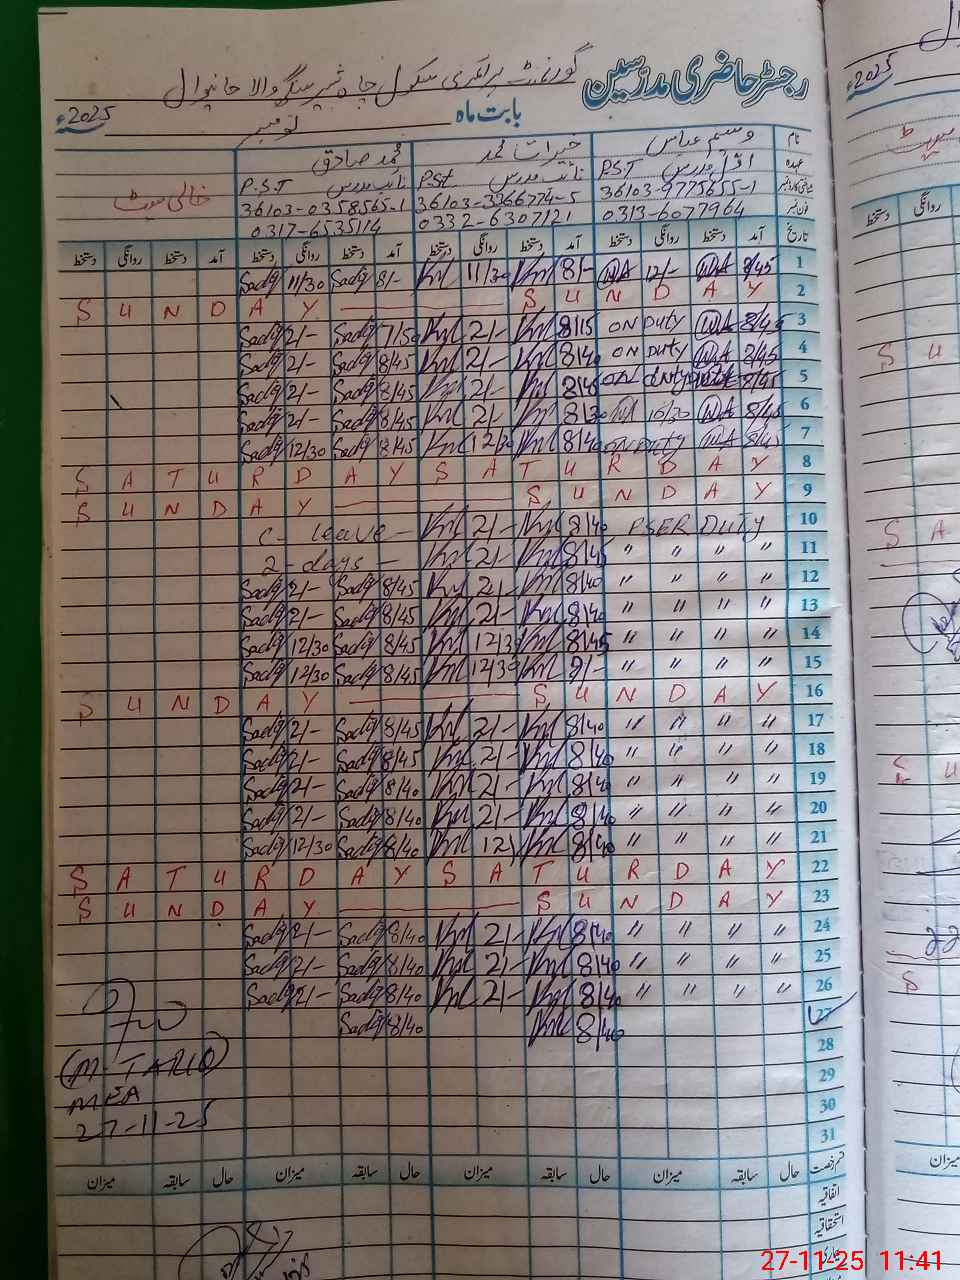 رجسٹر حاضری مدرسین گورنمنٹ پرائمری سکول چاہ شیر سنگھ والا خانیوال
بابت ماہ نومبر 2025ء
نام وسیم عباس خیرات محمد محمد صادق
عہدہ اول مدرس PST نائب مدرس PSt نائب مدرس P.S.T خالی سیٹ
شناختی کارڈ نمبر 36103-9775655-1 36103-3366774-5 36103-0358565-1
فون نمبر 0313-6077964 0332-6307121 0317-6535114
تاریخ آمد دستخط روانگی دستخط آمد دستخط روانگی دستخط آمد دستخط روانگی دستخط آمد دستخط روانگی دستخط
Sadq 11/30 Sadq 8/- 11/30 8/- WA 12/- WA 8/45 1
S U N D A Y S U N D A Y 2
Sadq 2/- Sadq 7/50 2/- 8/15 ON DUTY WA 8/45 3
Sadq 2/- Sadq 8/45 2/- 8/40 ON DUTY WA 8/45 4
Sadq 2/- Sadq 8/45 2/- 8/45 ON DUTY WA 8/45 5
Sadq 2/- Sadq 8/45 2/- 8/30 WA 10/20 WA 8/45 6
Sadq 12/30 Sadq 8/45 12/30 8/40 ON DUTY WA 8/45 7
S A T U R D A Y S A T U R D A Y 8
S U N D A Y S U N D A Y 9
C- leave - 2/- 8/40 PSER DUTY 10
2-days - 2/- 8/45 " " " " 11
Sadq 2/- Sadq 8/45 2/- 8/40 " " " " 12
Sadq 2/- Sadq 8/45 2/- 8/40 " " " " 13
Sadq 12/30 Sadq 8/45 12/30 8/45 " " " " 14
Sadq 12/30 Sadq 8/45 12/30 9/- " " " " 15
S U N D A Y S U N D A Y 16
Sadq 2/- Sadq 8/45 2/- 8/40 " " " " 17
Sadq 2/- Sadq 8/45 2/- 8/40 " " " " 18
Sadq 2/- Sadq 8/40 2/- 8/40 " " " " 19
Sadq 2/- Sadq 8/40 2/- 8/40 " " " " 20
Sadq 12/30 Sadq 8/40 12/ 8/40 " " " " 21
S A T U R D A Y S A T U R D A Y 22
S U N D A Y S U N D A Y 23
Sadq 2/- Sadq 8/40 2/- 8/40 " " " " 24
Sadq 2/- Sadq 8/40 2/- 8/40 " " " " 25
Sadq 2/- Sadq 8/40 2/- 8/40 " " " " 26
Sadq 8/40 8/40 27
28
(M. TARIQ) 29
MEA 30
27-11-25 31
قسم رخصت حال سابقہ میزان حال سابقہ میزان حال سابقہ میزان حال سابقہ میزان
اتفاقیہ
استحقاقیہ
بیماری
27-11-25 11:41